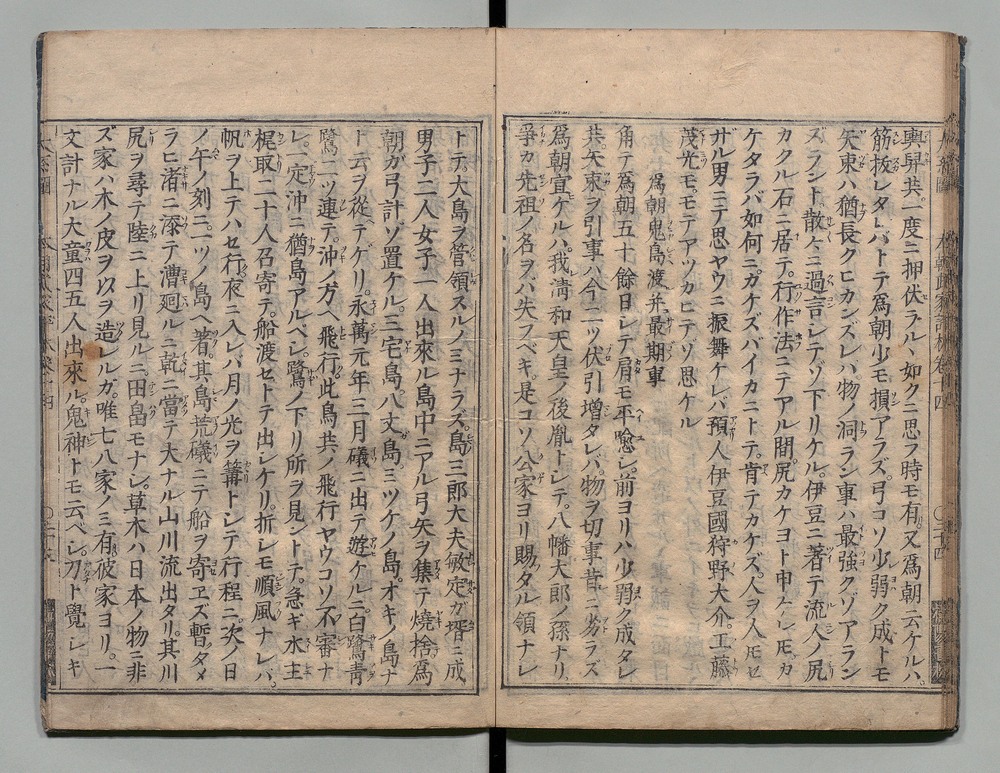 輿舁共。一度ニ押伏ラルヽ如クニ思ラ時モ有。又爲朝云ケルハ。
筋拔レタレバトテ爲朝少モ損アラズ。弓コソ少弱ク成トモ
矢束ハ猶長クヒカンズレハ物ノ洞ラン事ハ最強クゾアラン
ズラント散々ニ過言シテゾ下リケル。伊豆ニ著テ流人ノ尻
カクル石ニ居テ。行作法ニテアル間。尻カケヨト申ケレモ。カ
ケタラバ如何ニ。カケズバイカニトテ。肯テカケズ。人ヲ人モセ
ザル男ニテ思ヤウニ振舞ケレバ預人伊豆國狩野大介。工藤
茂光モ。モテアツカヒテゾ思ケル
爲朝鬼島渡并最期事
角テ爲朝五十餘日シテ肩モ平愈シ。前ヨリハ少弱ク成タレ
共。矢束ヲ引事ハ今二ツ伏引増タレハ。物ヲ切事昔ニ劣ラズ
爲朝宣ケルハ。我清和天皇ノ後胤トシテ。八幡大郎ノ孫ナリ。
爭カ先祖ノ名ヲハ失フベキ。是コソ公家ヨリ賜タル領ナレ
トテ。大島ヲ管領スルノミナラズ。島三郎大夫敏定ガ壻ニ成。
男子二人女子一人出來ル島中ニアル弓矢ヲ集テ燒捨爲
朝ガ弓計ゾ置ケル。三宅島八丈島。ミツケノ島。オキノ島ナ
ト云ヲ從ヘテゲリ。永萬元年三月礒ニ出テ遊ケルニ。白鷺青
鷺二ツ連テ。沖ノ方ヘ飛行。此鳥共ノ飛行ヤウコソ不審ナ
レ。定沖ニ猶島アルベシ。鷺ノ下リ所ヲ見ントテ。急ギ水主
梶取二十人召寄テ。船渡セトテ出シケリ。折シモ順風ナレハ。
帆ヲ上テハセ行。夜ニ入レバ月ノ光ヲ篝トシテ行程ニ。次ノ日
ノ午ノ刻ニ。一ツノ島ヘ著。其島荒礒ニテ船ヲ寄エズ暫タメ
ラヒ渚ニ添テ漕廻ルニ乾ニ當テ大ナル山川流出タリ。其川
尻ヲ尋テ陸ニ上リ見ルニ。田畠モナシ。草木ハ日本ノ物ニ非
ズ家ハ木ノ皮ヲ以ヲ造レルガ。唯七八家ノミ有。彼家ヨリ。一
丈計ナル大童四五人出來ル。鬼神トモ云ベシ。刀ト覺シキ